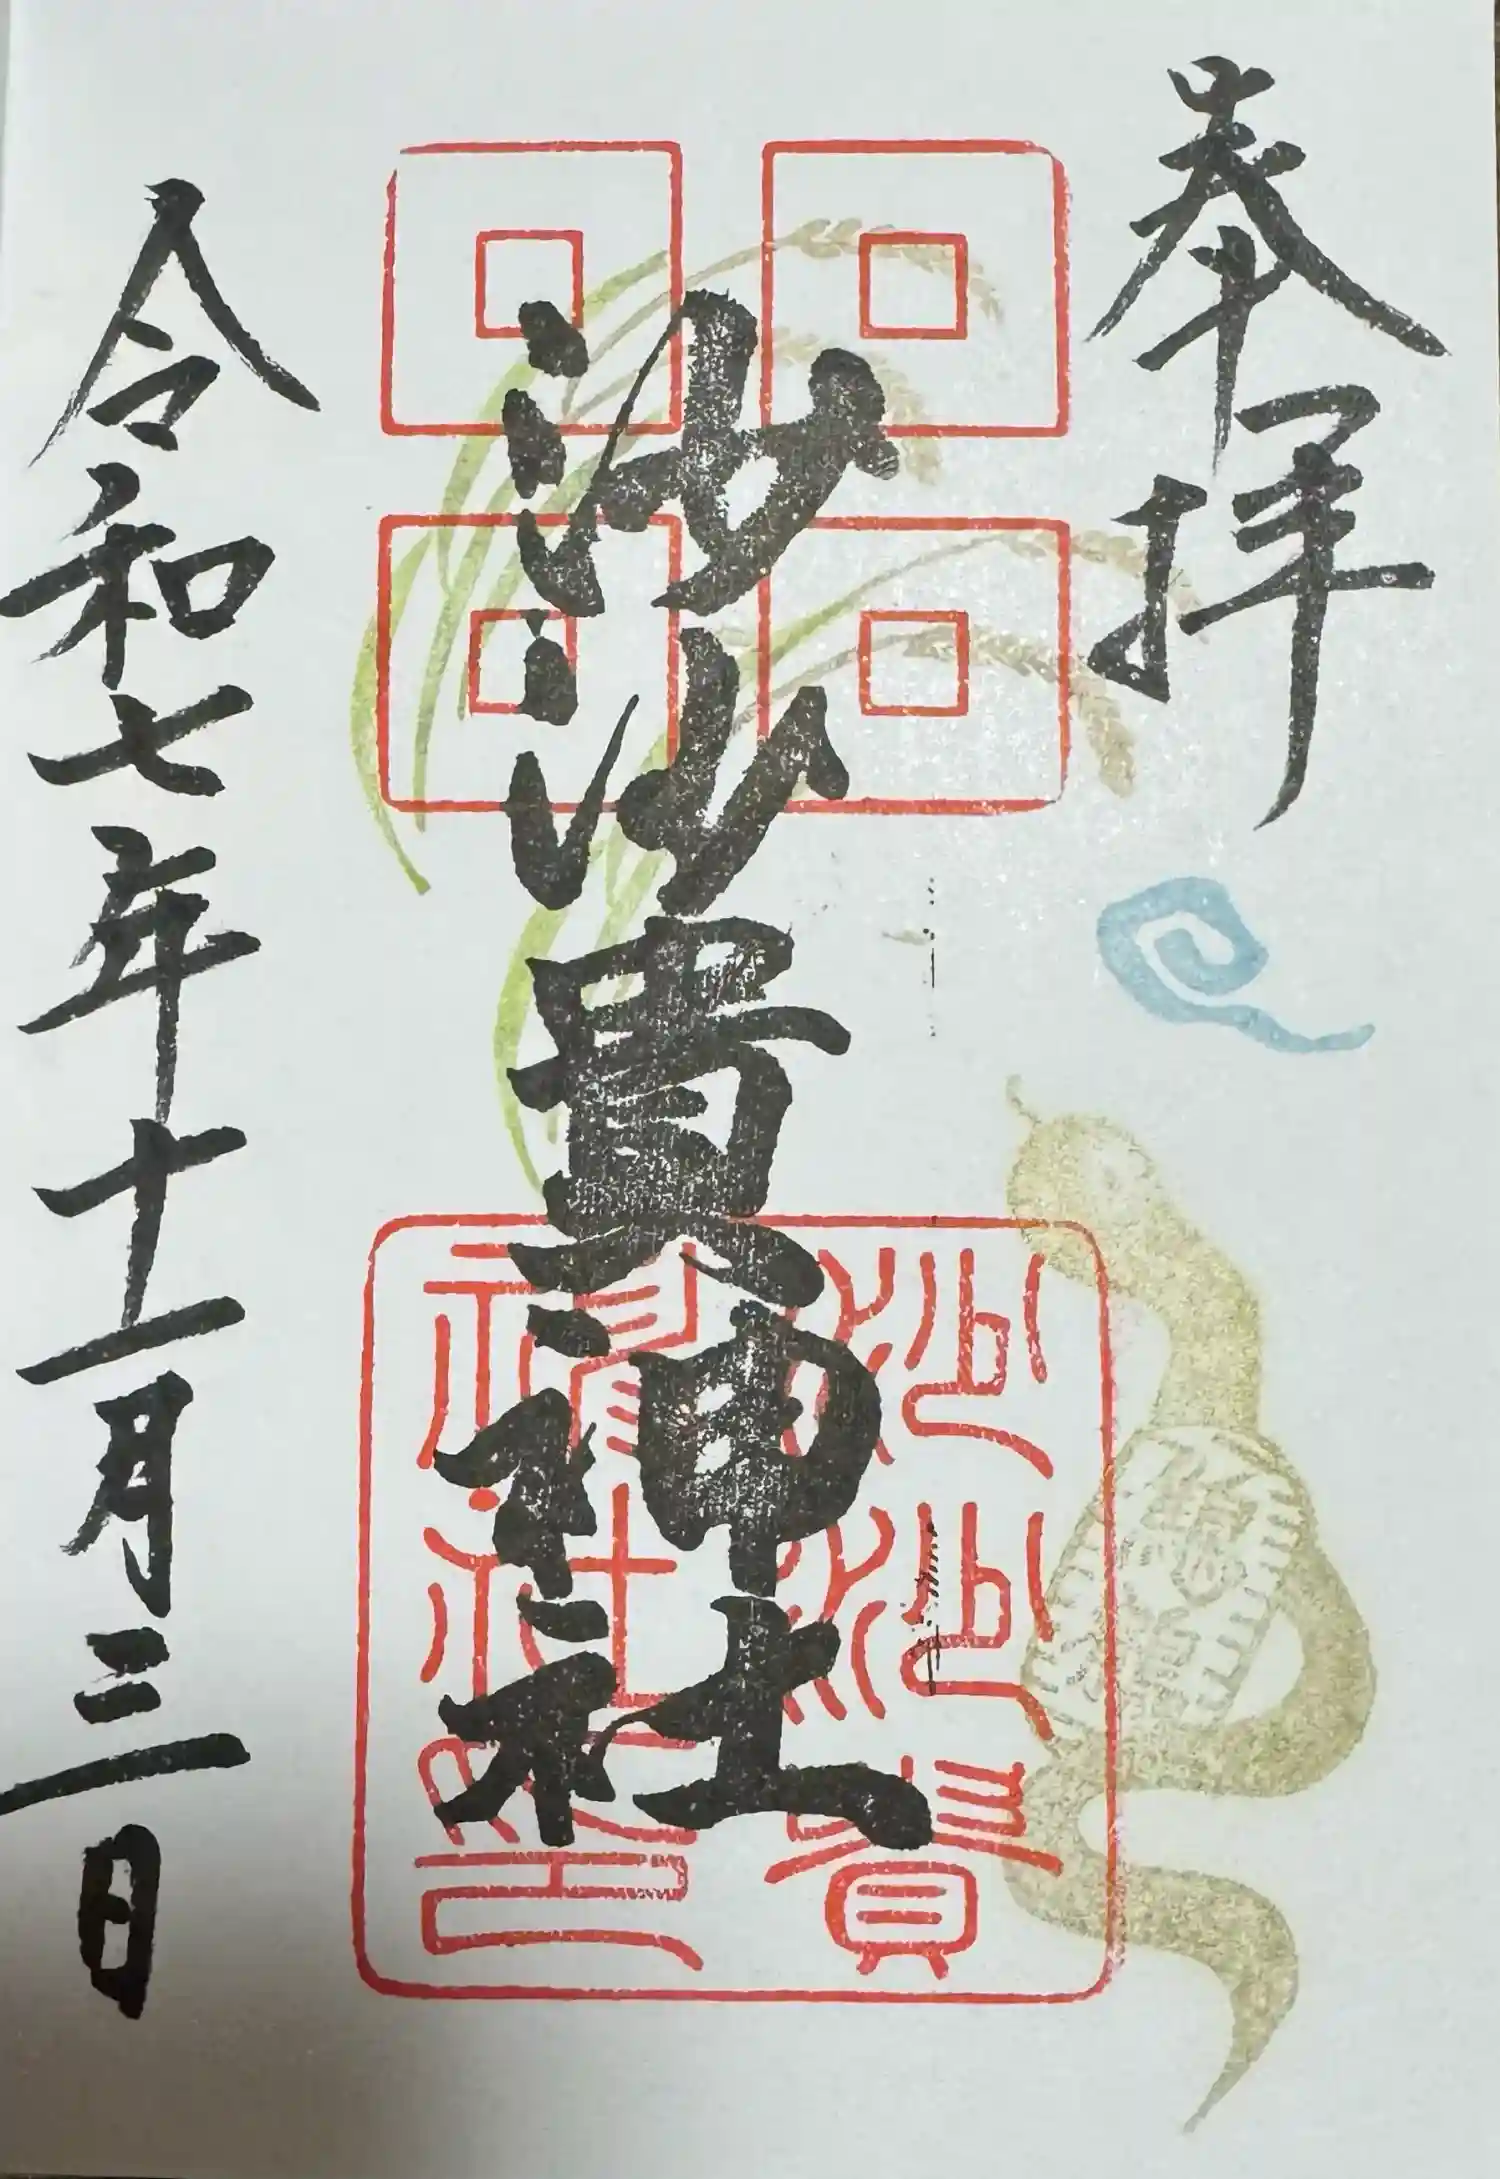 奉拝
沙沙貴神社
令和七年十一月三日
沙沙貴
神社印